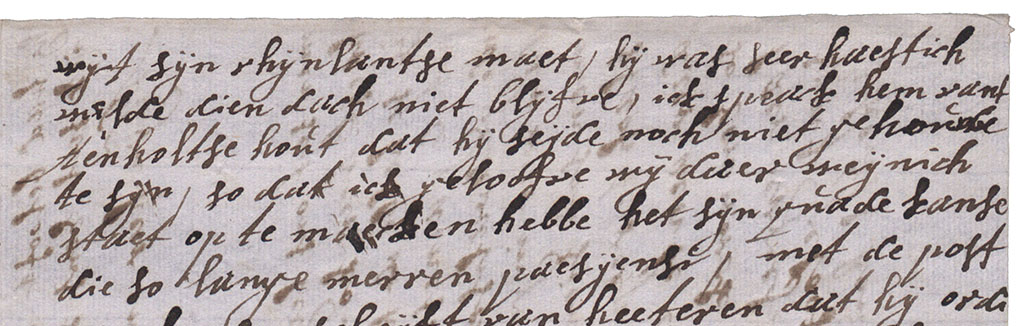 wyt syn rhynlantse maet, hy was seer haestich
wilde dien dach niet blyfve, ick sprack hem vant
Aenholtse hout dat hy seyde noch niet gehouwe
te syn, so dat ick geloofve wy daer weynich
staet op te maecken hebbe het syn quade kanse
die so lange merren paesyensi, met de post
van heeteren dat hy ordi